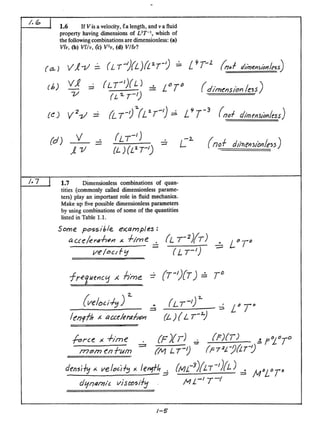 1.6
1.6 If V is a velocity, ℓ a length, and ν a fluid
property having dimensions of L²T⁻¹, which of
the following combinations are dimensionless: (a)
Vℓν, (b) Vℓ/ν, (c) V²ν, (d) V/ℓν?
(a) Vℓν ≐ (LT⁻¹)(L)(L²T⁻¹) ≐ L⁴T⁻² (not dimensionless)
(b) Vℓ/ν ≐ (LT⁻¹)(L)/(L²T⁻¹) ≐ L⁰T⁰ (dimensionless)
(c) V²ν ≐ (LT⁻¹)²(L²T⁻¹) ≐ L⁴T⁻³ (not dimensionless)
(d) V/ℓν ≐ (LT⁻¹)/(L)(L²T⁻¹) ≐ L⁻² (not dimensionless)
1.7
1.7 Dimensionless combinations of quan-
tities (commonly called dimensionless parame-
ters) play an important role in fluid mechanics.
Make up five possible dimensionless parameters
by using combinations of some of the quantities
listed in Table 1.1.
Some possible examples:
acceleration x time / velocity ≐ (LT⁻²)(T)/(LT⁻¹) ≐ L⁰T⁰
frequency x time ≐ (T⁻¹)(T) ≐ T⁰
(velocity)²/length x acceleration ≐ (LT⁻¹)²/(L)(LT⁻²) ≐ L⁰T⁰
force x time/momentum ≐ (F)(T)/(MLT⁻¹) ≐ (F)(T)/(FT²L⁻¹)(LT⁻¹) ≐ F⁰L⁰T⁰
density x velocity x length/dynamic viscosity ≐ (ML⁻³)(LT⁻¹)(L)/ML⁻¹T⁻¹ ≐ M⁰L⁰T⁰
1-5